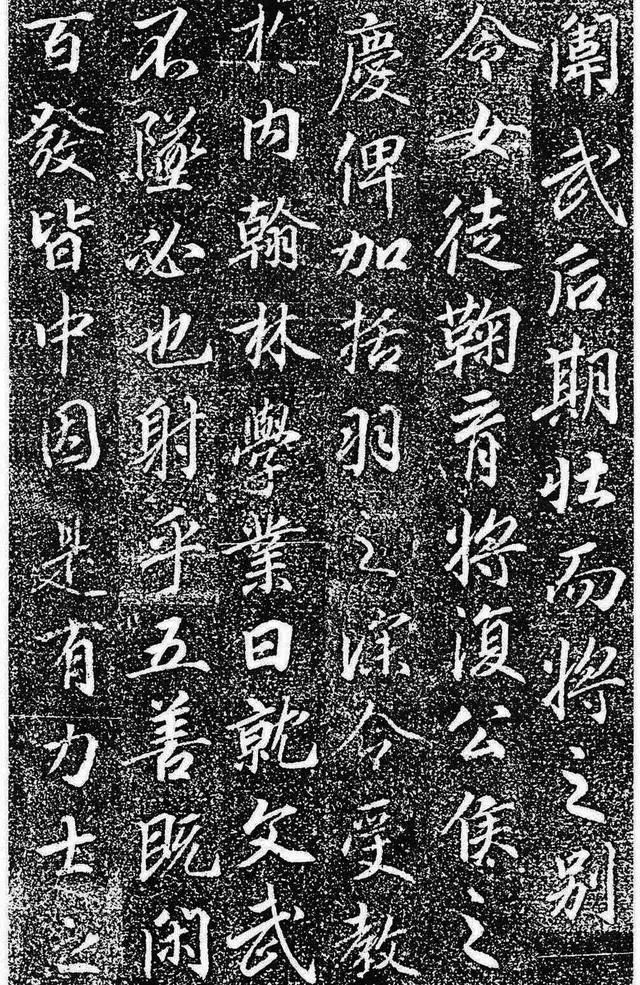 闈武后期壯而將之別
令女徒鞠育將復公侯之
慶俾加括羽之深令受教
於內翰林學業日就文武
不墜必也射乎五善既閑
百發皆中因是有力士之